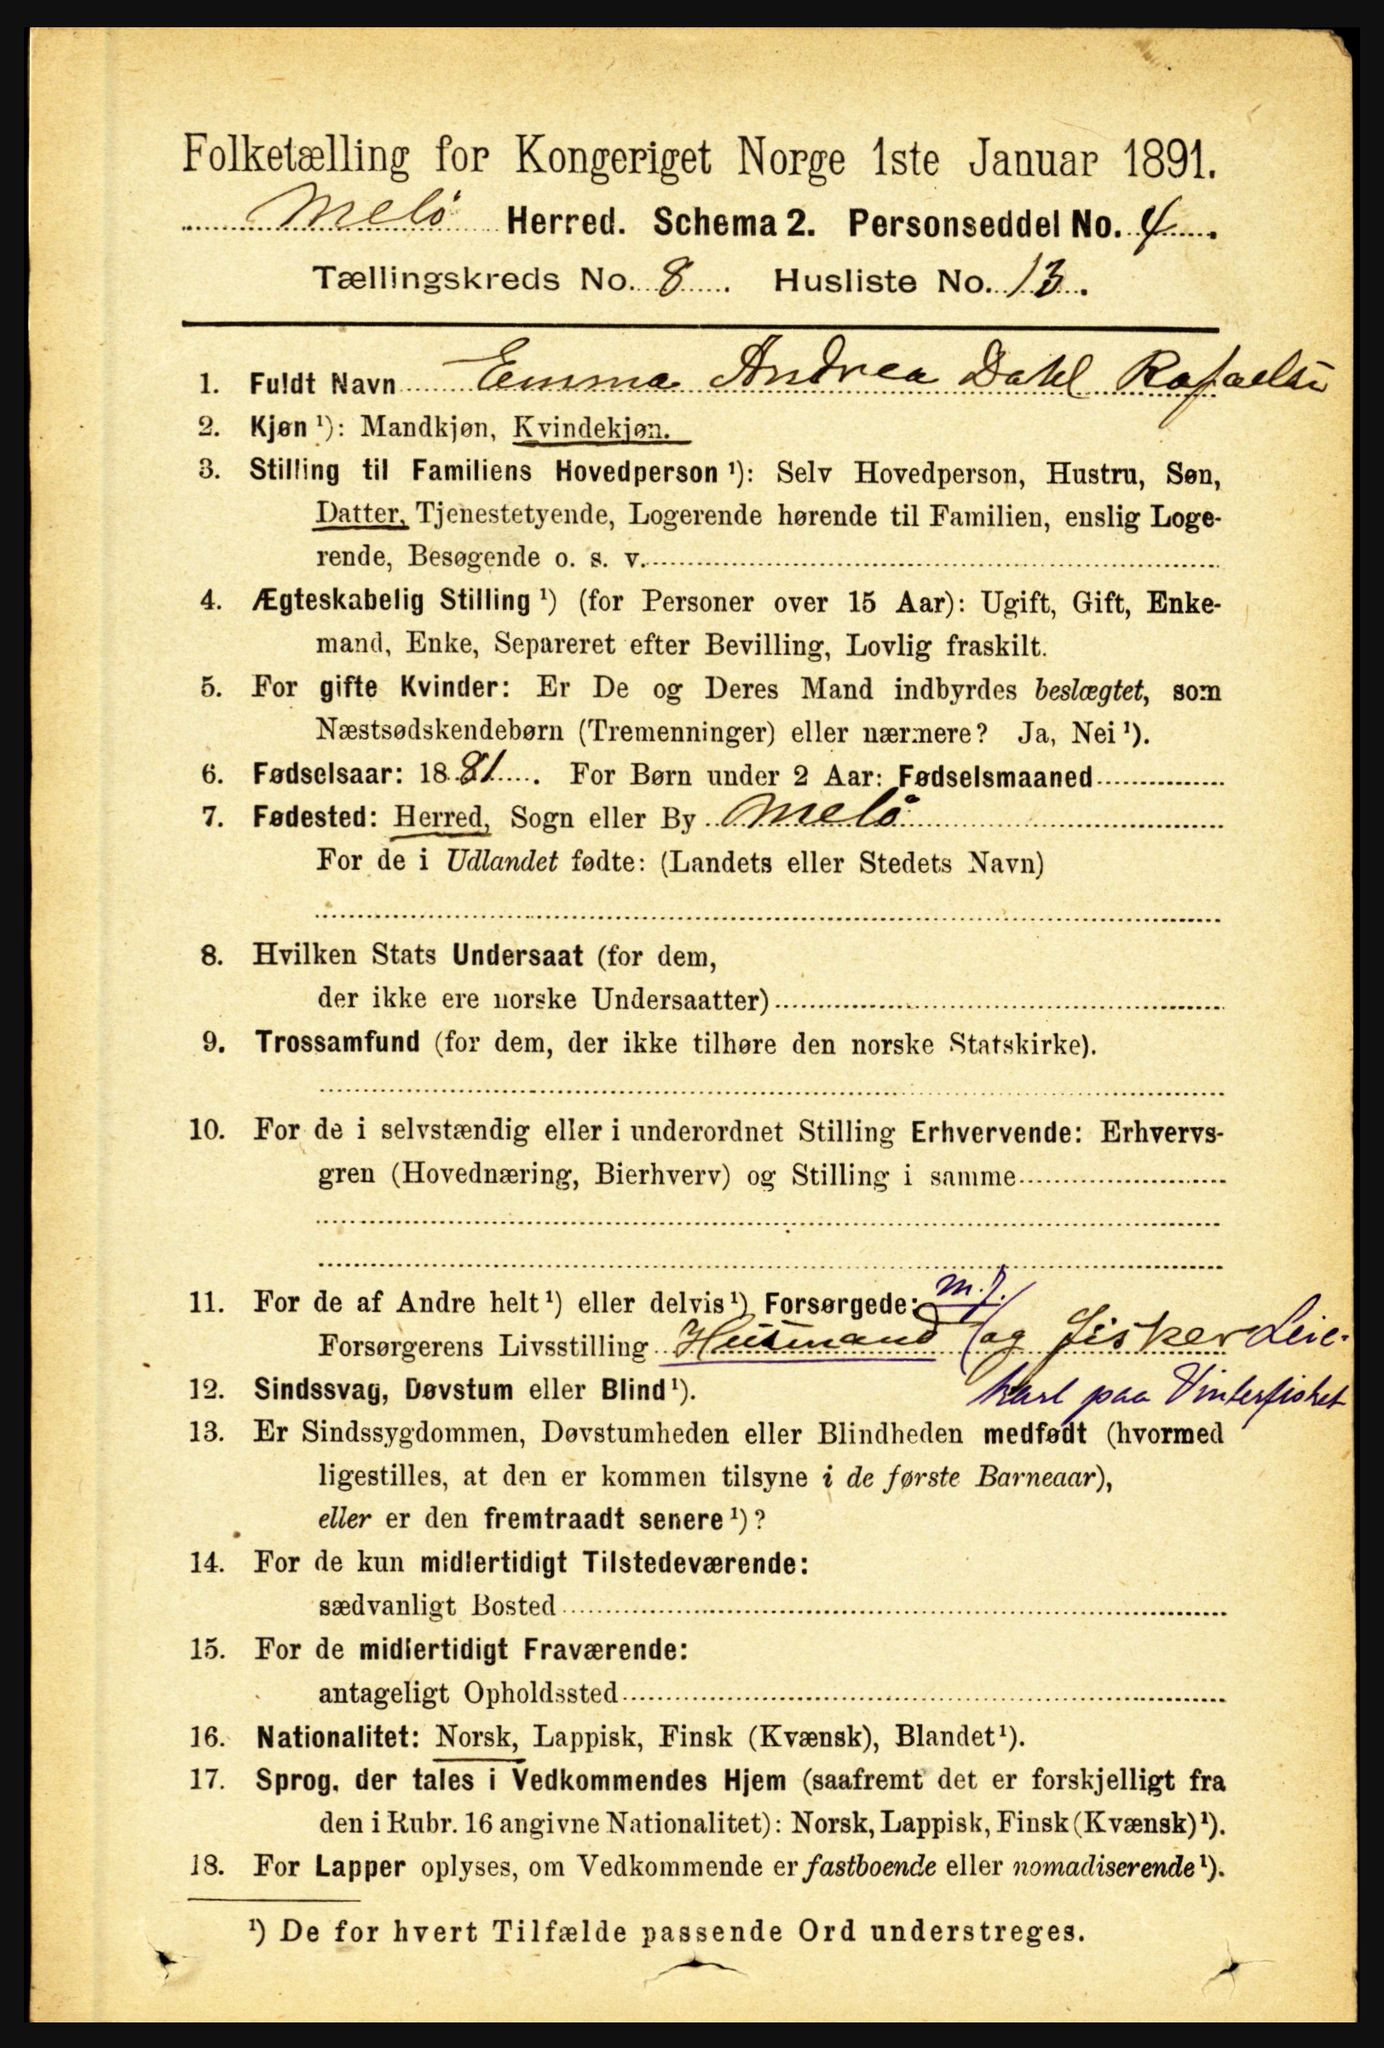 Folketælling for Kongeriget Norge 1ste Januar 1891.
Melö Herred. Schema 2. Personseddel No. 4.
Tællingskreds No. 8. Husliste No. 13.
1. Fuldt Navn Emma Andrea Dahl Rafaelsn
2. Kjøn ¹): Mandkjøn, Kvindekjøn.
3. Stilling til Familiens Hovedperson ¹): Selv Hovedperson, Hustru, Søn,
Datter, Tjenestetyende, Logerende hørende til Familien, enslig Loge-
rende, Besøgende o. s. v.
4. Ægteskabelig Stilling ¹) (for Personer over 15 Aar): Ugift, Gift, Enke-
mand, Enke, Separeret efter Bevilling, Lovlig fraskilt.
5. For gifte Kvinder: Er De og Deres Mand indbyrdes beslægtet, som
Næstsødskendebørn (Tremenninger) eller nærmere? Ja, Nei ¹).
6. Fødselsaar: 1881. For Børn under 2 Aar: Fødselsmaaned
7. Fødested: Herred, Sogn eller By Melö
For de i Udlandet fødte: (Landets eller Stedets Navn)
8. Hvilken Stats Undersaat (for dem,
der ikke ere norske Undersaatter)
9. Trossamfund (for dem, der ikke tilhøre den norske Statskirke).
10. For de i selvstændig eller i underordnet Stilling Erhvervende: Erhvervs-
gren (Hovednæring, Bierhverv) og Stilling i samme
11. For de af Andre helt ¹) eller delvis ¹) Forsørgede: m. j.
Forsørgerens Livsstilling Husmand og fisker Leie-
karl paa Vinterfisket
12. Sindssvag, Døvstum eller Blind ¹).
13. Er Sindssygdommen, Døvstumheden eller Blindheden medfødt (hvormed
ligestilles, at den er kommen tilsyne i de første Barneaar),
eller er den fremtraadt senere ¹)?
14. For de kun midlertidigt Tilstedeværende:
sædvanligt Bosted
15. For de midlertidigt Fraværende:
antageligt Opholdssted
16. Nationalitet: Norsk, Lappisk, Finsk (Kvænsk), Blandet ¹).
17. Sprog, der tales i Vedkommendes Hjem (saafremt det er forskjelligt fra
den i Rubr. 16 angivne Nationalitet): Norsk, Lappisk, Finsk (Kvænsk) ¹).
18. For Lapper oplyses, om Vedkommende er fastboende eller nomadiserende ¹).
¹) De for hvert Tilfælde passende Ord understreges.